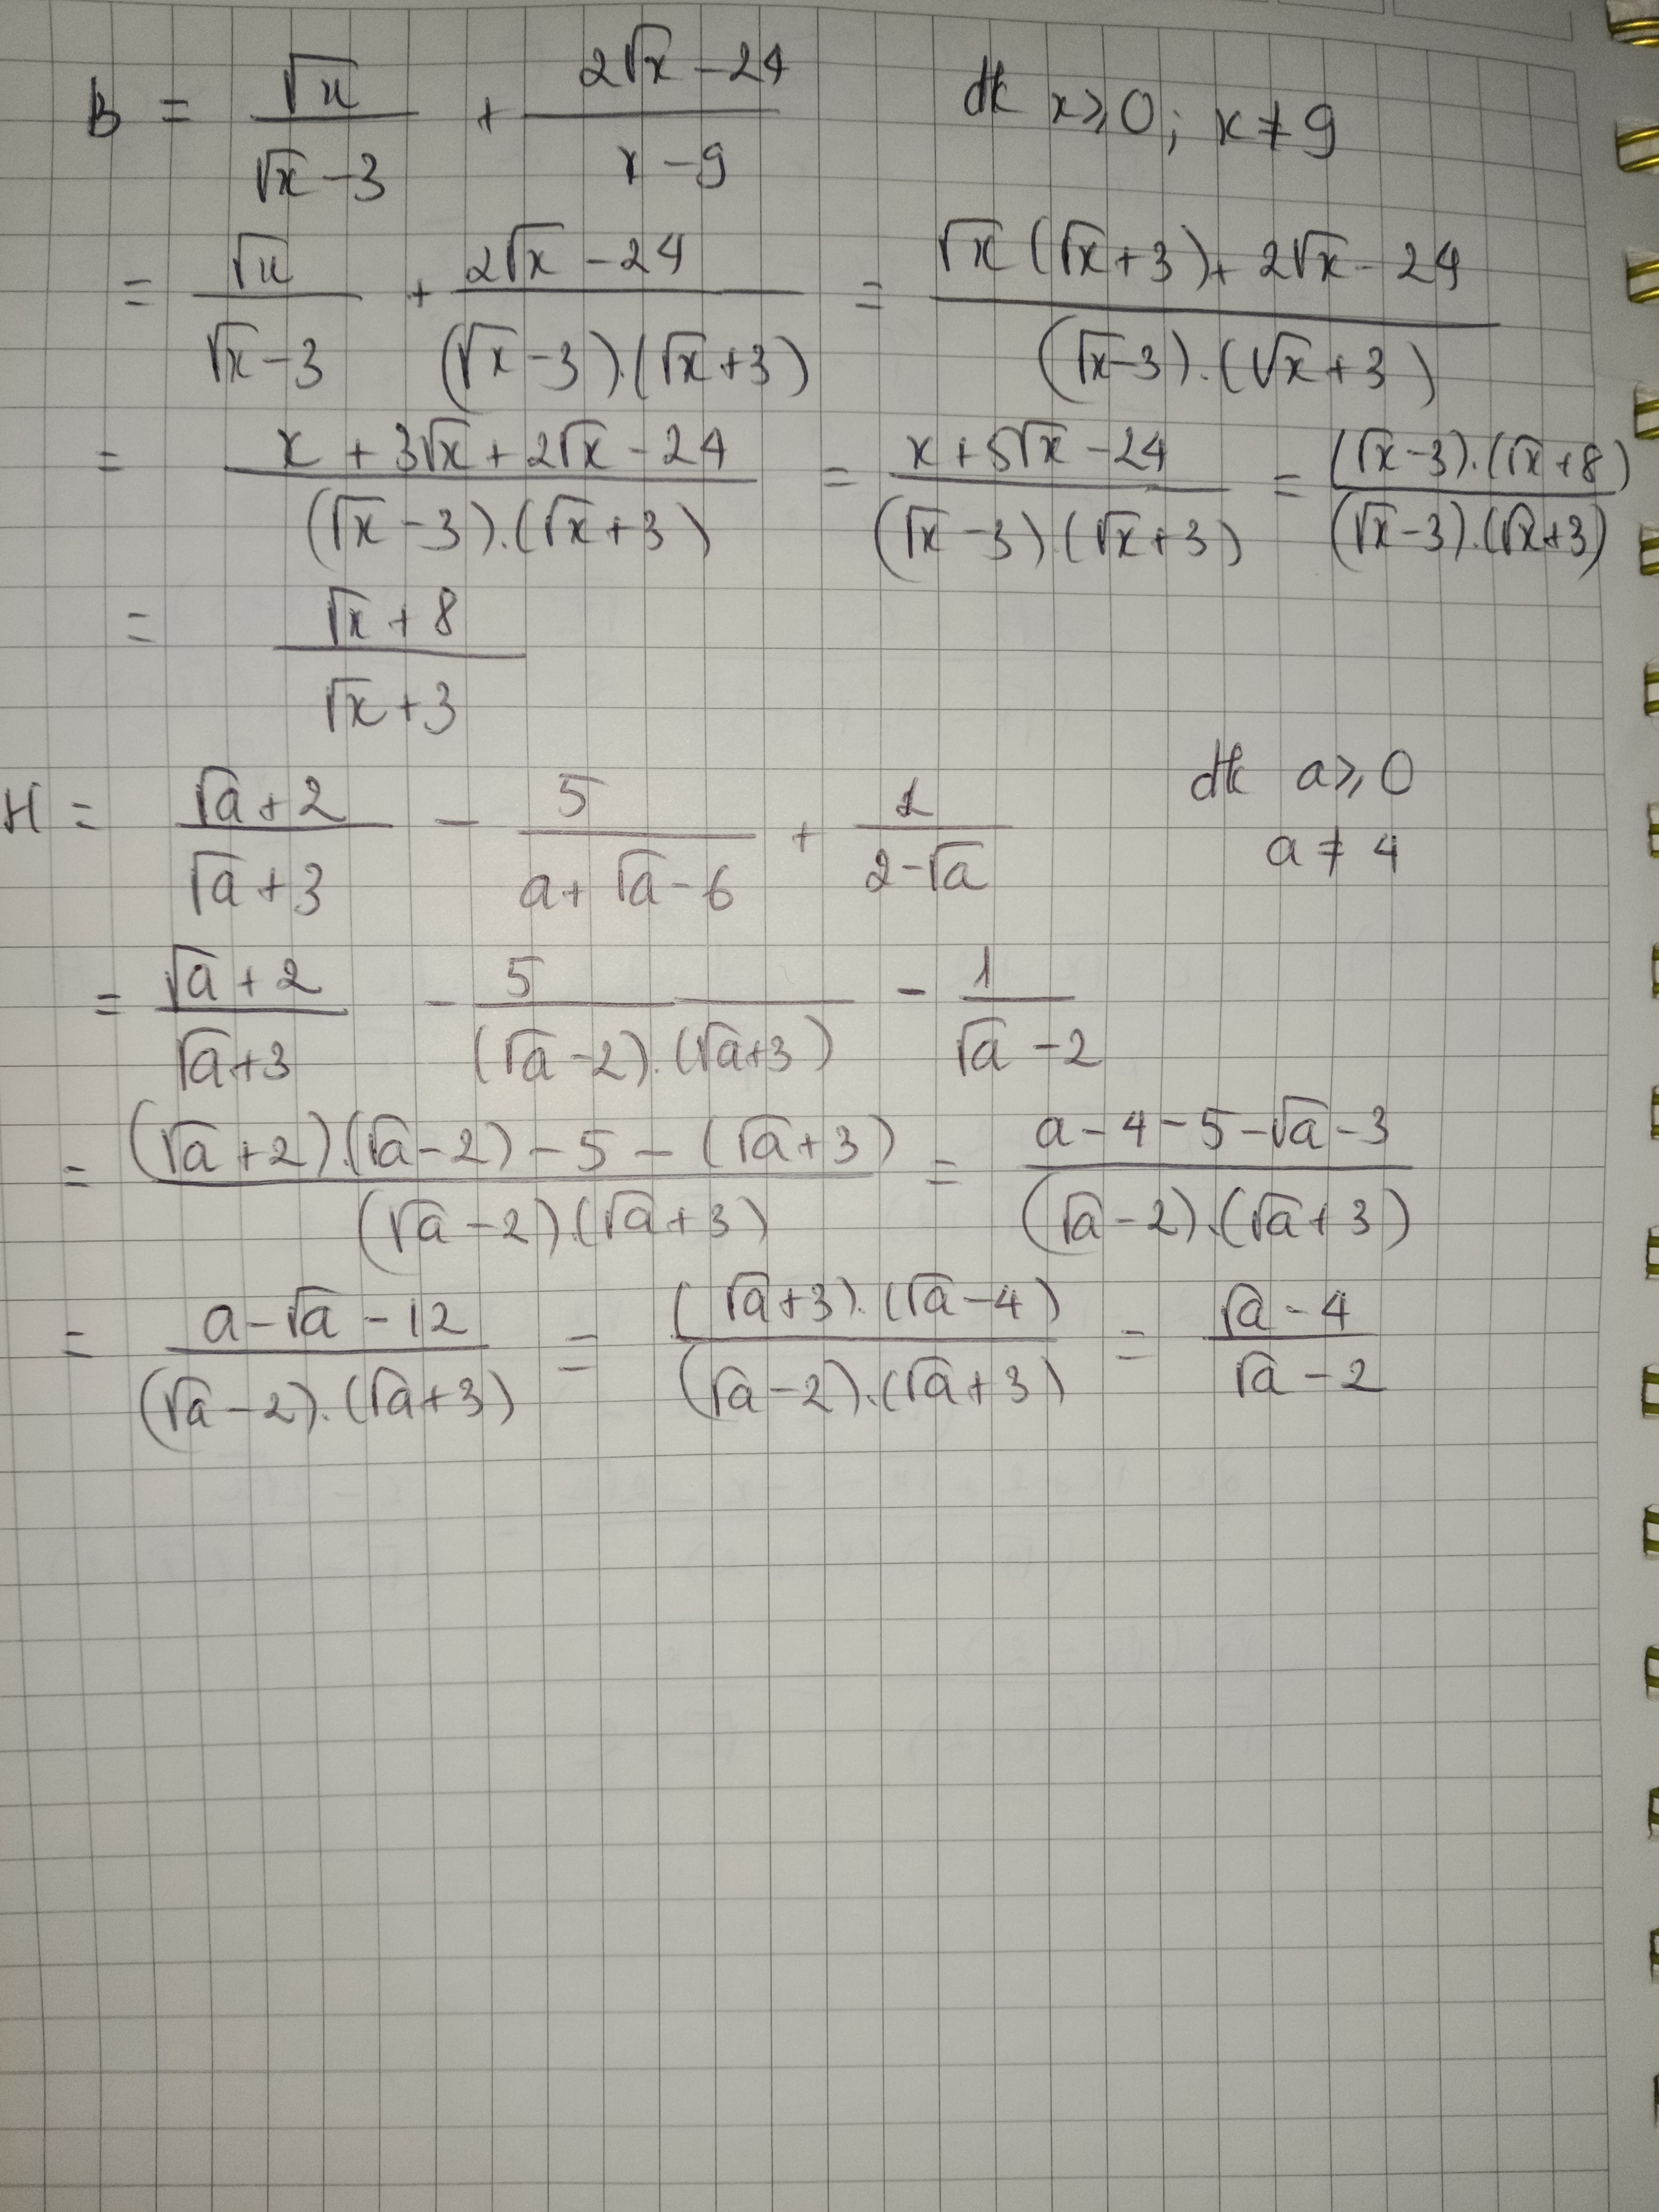 B = √x/(√x-3) + (2√x-24)/(x-9) đk x≥0; x≠9
= √x/(√x-3) + (2√x-24)/((√x-3).(√x+3)) = (√x(√x+3)+2√x-24)/((√x-3).(√x+3))
= (x+3√x+2√x-24)/((√x-3).(√x+3)) = (x+5√x-24)/((√x-3)(√x+3)) = ((√x-3).(√x+8))/((√x-3).(√x+3))
= (√x+8)/(√x+3)
H = (√a+2)/(√a+3) - 5/(a+√a-6) + 1/(2-√a) đk a≥0
a≠4
= (√a+2)/(√a+3) - 5/((√a-2).(√a+3)) - 1/(√a-2)
= ((√a+2).(√a-2)-5-(√a+3))/((√a-2).(√a+3)) = (a-4-5-√a-3)/((√a-2).(√a+3))
= (a-√a-12)/((√a-2).(√a+3)) = ((√a+3).(√a-4))/((√a-2).(√a+3)) = (√a-4)/(√a-2)